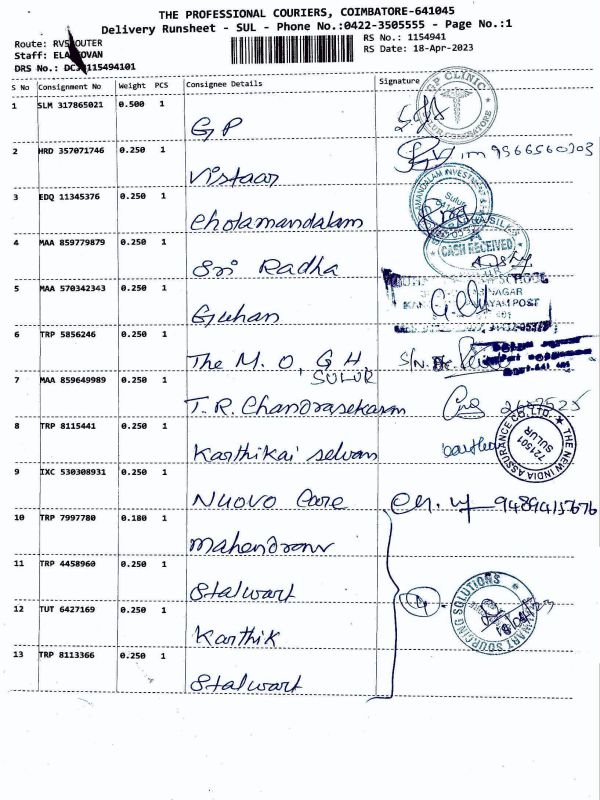 THE PROFESSIONAL COURIERS, COIMBATORE-641045
Delivery Runsheet - SUL - Phone No.:0422-3505555 - Page No.:1
Route: OUTER
RS No.: 1154941
Staff:
RS Date: 18-Apr-2023
DRS No.: 115494101
S No Consignment No Weight PCS Consignee Details Signature
1 SLM 317865021 0.500 1
GP
GP CLINIC
2 HRD 357071746 0.250 1
Vistaar
3 EDQ 11345376 0.250 1
Cholamandalam
Sulur
4 MAA 859779879 0.250 1
Sri Radha
CASH RECEIVED
5 MAA 570342343 0.250 1
Guhan
SCHOOL
NAGAR
POST
6 TRP 5856246 0.250 1
The M.O, GH
SULUR
7 MAA 859649989 0.250 1
T.R. Chandrasekaran
8 TRP 8115441 0.250 1
Karthikai selvan
THE NEW INDIA ASSURANCE CO. LTD.
721501
SULUR
9 IXC 530308931 0.250 1
Nuovo Care
10 TRP 7997780 0.180 1
Mahendran
11 TRP 4458960 0.250 1
Stalwart
4
STALWART SOURCING SOLUTIONS
12 TUT 6427169 0.250 1
Karthik
13 TRP 8113366 0.250 1
Stalwart